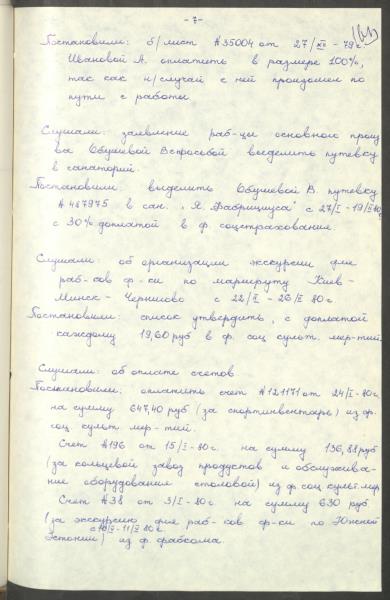 - 7 -
Постановили: б/лист №35004 от 27/XII - 79 г.
Ивановой А. оплатить в размере 100%,
так как н/случай с ней произошел по
пути с работы.
Слушали: заявление раб-цы основного произ
ва Обушевой В с просьбой выделить путевку
в санаторий.
Постановили: выделить Обушевой В. путевку
№487975 в сан. "Я. Фабрициуса" с 27/I - 19/II 80 г
с 30% доплатой в ф. соцстрахования.
Слушали: об организации экскурсии для
раб-ков ф-ки по маршруту Киев -
Минск - с 22/II - 26/II 80 г
Постановили: список утвердить, с доплатой
каждому 19,60 руб в ф. соц культ. мер-тий.
Слушали: об оплате счетов.
Постановили: оплатить счет №121171 от 24/I - 80 г.
на сумму 647,40 руб (за спортинвентарь) из ф.
соц культ мер-тий.
Счет №196 от 15/I - 80 г. на сумму 136,88 руб
(за кольцевой завоз продуктов и обслужива-
ние оборудования столовой) из ф. соц культ. мер
Счет №38 от 3/I - 80 г. на сумму 630 руб
(за экскурсию для раб-ков ф-ки по Южной
Эстонии) из ф. фабкома.